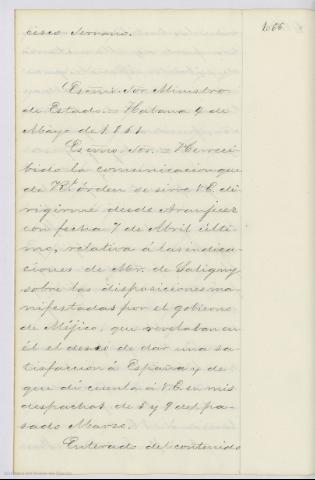 1066
cisco Serrano.
Escmo. Sor. Ministro
de Estado. Habana 9 de
Mayo de 1861
Escmo Sor. He reci-
bido la comunicacion que
de Rl. orden se sirve V.E. di-
rigirme desde Aranjuez
con fecha 7 de Abril últi-
mo, relativa á las indica-
ciones de Mr. de Saligny
sobre las disposiciones ma-
nifestadas por el gobierno
de Méjico, que revelaban en
él el deseo de dar una sa-
tisfaccion á España y de
que dí cuenta á V.E. en mis
despachos de 8 y 9 del pa-
sado Marzo.
Enterado del contenido